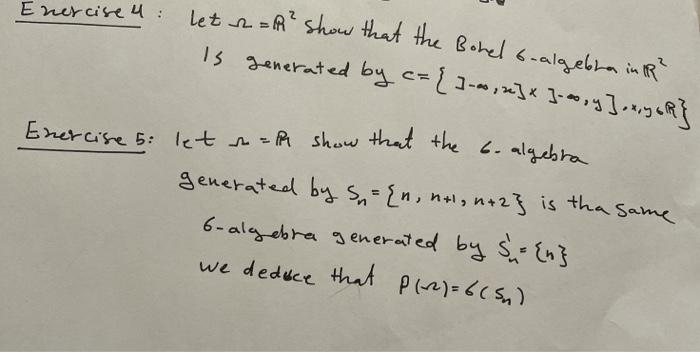 Exercise 4: Let Ω = ℝ² show that the Borel σ-algebra in ℝ²
Is generated by c = { ]-∞, x] × ]-∞, y], x, y ∈ ℝ}
Exercise 5: let Ω = ℝ show that the σ-algebra
generated by Sₙ = {n, n+1, n+2} is tha same
σ-algebra generated by S'ₙ = {n}
we deduce that P(Ω) = σ(Sₙ)